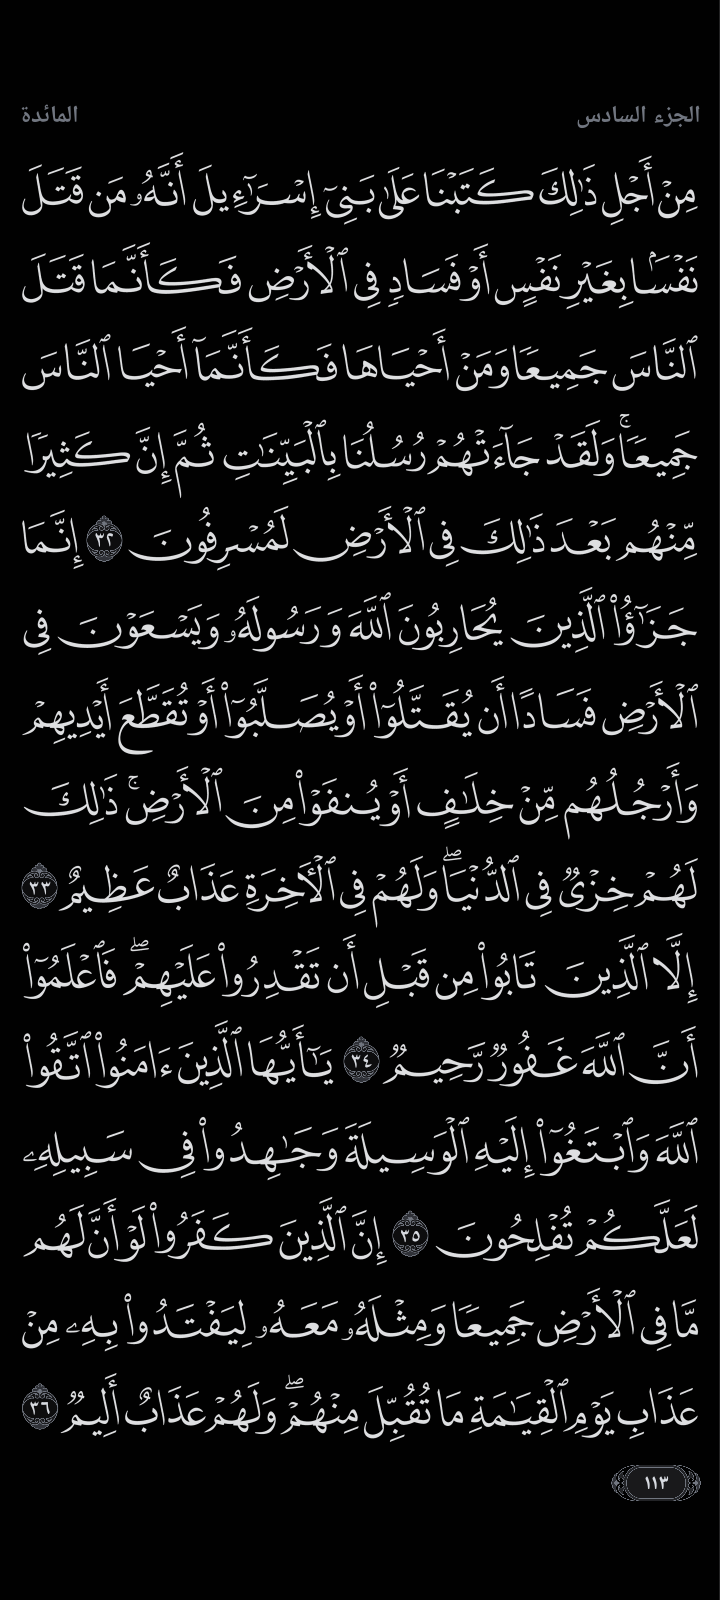 الجزء السادس
المائدة
مِنْ أَجْلِ ذَٰلِكَ كَتَبْنَا عَلَىٰ بَنِىٓ إِسْرَٰٓءِيلَ أَنَّهُۥ مَن قَتَلَ
نَفْسًۢا بِغَيْرِ نَفْسٍ أَوْ فَسَادٍ فِى ٱلْأَرْضِ فَكَأَنَّمَا قَتَلَ
ٱلنَّاسَ جَمِيعًا وَمَنْ أَحْيَاهَا فَكَأَنَّمَآ أَحْيَا ٱلنَّاسَ
جَمِيعًا ۚ وَلَقَدْ جَآءَتْهُمْ رُسُلُنَا بِٱلْبَيِّنَٰتِ ثُمَّ إِنَّ كَثِيرًا
مِّنْهُم بَعْدَ ذَٰلِكَ فِى ٱلْأَرْضِ لَمُسْرِفُونَ ٣٢ إِنَّمَا
جَزَٰٓؤُا۟ ٱلَّذِينَ يُحَارِبُونَ ٱللَّهَ وَرَسُولَهُۥ وَيَسْعَوْنَ فِى
ٱلْأَرْضِ فَسَادًا أَن يُقَتَّلُوٓا۟ أَوْ يُصَلَّبُوٓا۟ أَوْ تُقَطَّعَ أَيْدِيهِمْ
وَأَرْجُلُهُم مِّنْ خِلَٰفٍ أَوْ يُنفَوْا۟ مِنَ ٱلْأَرْضِ ۚ ذَٰلِكَ
لَهُمْ خِزْىٌ فِى ٱلدُّنْيَا ۖ وَلَهُمْ فِى ٱلْـَٔاخِرَةِ عَذَابٌ عَظِيمٌ ٣٣
إِلَّا ٱلَّذِينَ تَابُوا۟ مِن قَبْلِ أَن تَقْدِرُوا۟ عَلَيْهِمْ ۖ فَٱعْلَمُوٓا۟
أَنَّ ٱللَّهَ غَفُورٌ رَّحِيمٌ ٣٤ يَٰٓأَيُّهَا ٱلَّذِينَ ءَامَنُوا۟ ٱتَّقُوا۟
ٱللَّهَ وَٱبْتَغُوٓا۟ إِلَيْهِ ٱلْوَسِيلَةَ وَجَٰهِدُوا۟ فِى سَبِيلِهِۦ
لَعَلَّكُمْ تُفْلِحُونَ ٣٥ إِنَّ ٱلَّذِينَ كَفَرُوا۟ لَوْ أَنَّ لَهُم
مَّا فِى ٱلْأَرْضِ جَمِيعًا وَمِثْلَهُۥ مَعَهُۥ لِيَفْتَدُوا۟ بِهِۦ مِنْ
عَذَابِ يَوْمِ ٱلْقِيَٰمَةِ مَا تُقُبِّلَ مِنْهُمْ ۖ وَلَهُمْ عَذَابٌ أَلِيمٌ ٣٦
١١٣